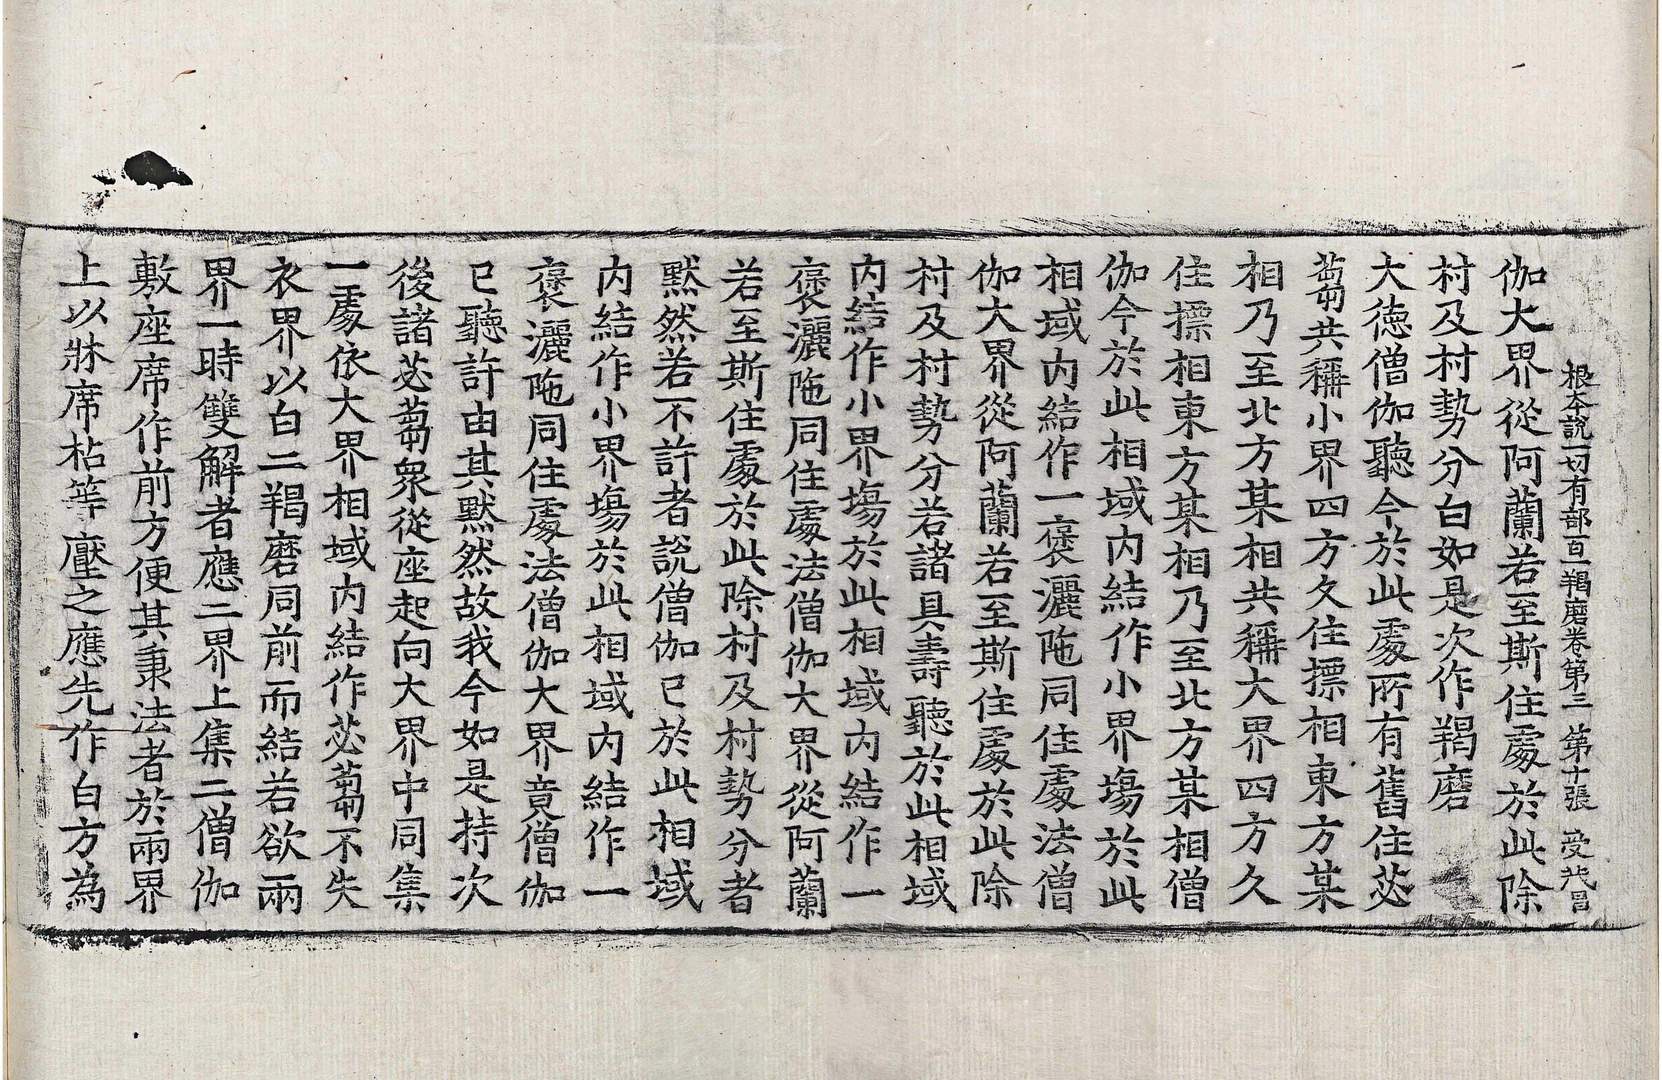 根本說一切有部百一羯磨卷第三 第十張 受
伽大界從阿蘭若至斯住處於此除
村及村勢分白如是次作羯磨
大德僧伽聽今於此處所有舊住苾
蒭共稱小界四方久住摽相東方某
相乃至北方某相共稱大界四方久
住摽相東方某相乃至北方某相僧
伽今於此相域內結作小界場於此
相域內結作一褒灑陁同住處法僧
伽大界從阿蘭若至斯住處於此除
村及村勢分若諸具壽聽於此相域
內結作小界場於此相域內結作一
褒灑陁同住處法僧伽大界從阿蘭
若至斯住處於此除村及村勢分者
默然若不許者說僧伽已於此相域
內結作小界場於此相域內結作一
褒灑陁同住處法僧伽大界竟僧伽
已聽許由其默然故我今如是持次
後諸苾蒭眾從座起向大界中同集
一處依大界相域內結作苾蒭不失
衣界以白二羯磨同前而結若欲兩
界一時雙解者應二界上集二僧伽
敷座席作前方便其秉法者於兩界
上以牀席枯等壓之應先作白方為